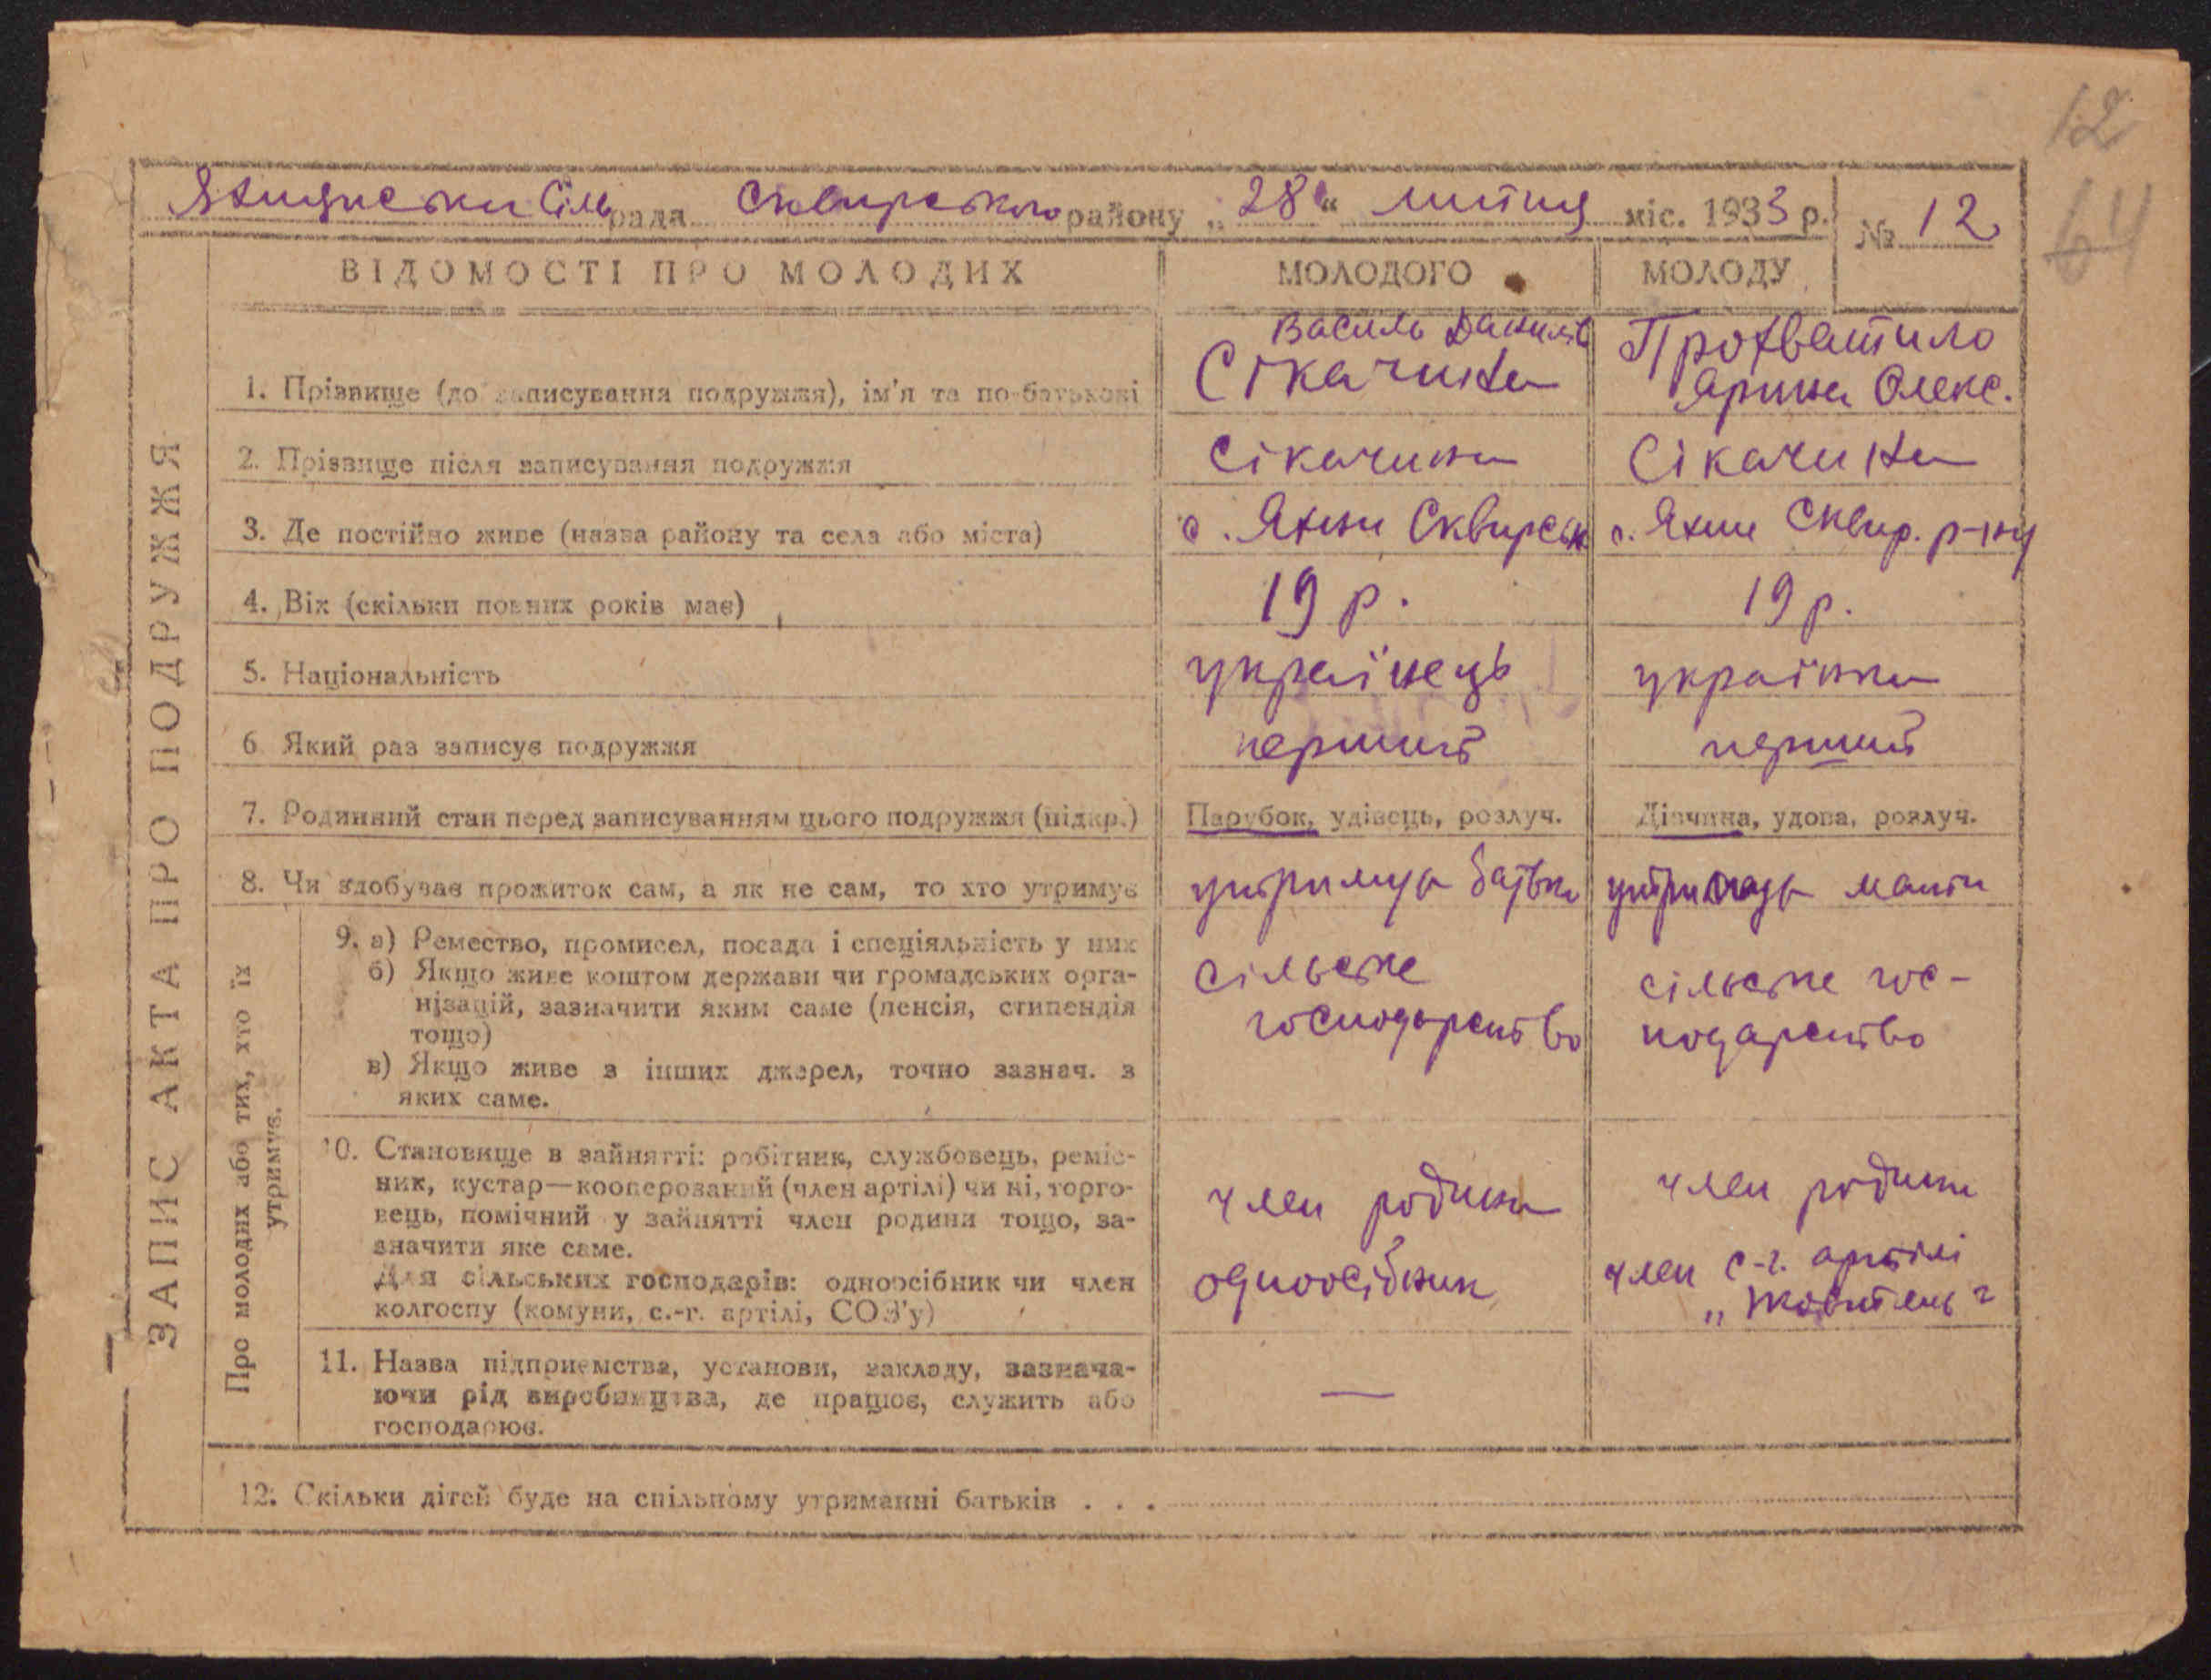 12
64
Яхнянська Сільрада Сквирського району „28“ липня міс. 1933 р. № 12
ВІДОМОСТІ ПРО МОЛОДИХ
МОЛОДОГО
МОЛОДУ
ЗАПИС АКТА ПРО ПОДРУЖЖЯ
1. Прізвище (до записування подружжя), ім'я та по-батькові
Василь Данилів
Сікачина
Прохватило
Ярина Олекс.
2. Прізвище після записування подружжя
Сікачина
Сікачина
3. Де постійно живе (назва району та села або міста)
с. Яхни Сквирськ
с. Яхни Сквир. р-ну
4. Вік (скільки повних років має)
19 р.
19 р.
5. Національність
українець
українка
6 Який раз записує подружжя
перший
перший
7. Родинний стан перед записуванням цього подружжя (підкр.)
Парубок, удівець, розлуч.
Дівчина, удова, розлуч.
8. Чи здобуває прожиток сам, а як не сам, то хто утримує
утримує батько
утримує мати
Про молодих або тих, хто їх
утримує.
9. а) Ремество, промисел, посада і спеціяльність у них
б) Якщо живе коштом держави чи громадських орга-
нізацій, зазначити яким саме (пенсія, стипендія
тощо)
в) Якщо живе з інших джерел, точно зазнач. з
яких саме.
сільське
господарство
сільське гос-
подарство
10. Становище в зайнятті: робітник, службовець, реміс-
ник, кустар—кооперований (член артілі) чи ні, торго-
вець, помічний у зайнятті член родини тощо, за-
значити яке саме.
Для сільських господарів: одноосібник чи член
колгоспу (комуни, с.-г. артілі, СОЗ'у)
член родини
одноосібник
член родини
член с-г. артілі
„Жовтень"
11. Назва підприємства, установи, закладу, зазнача-
ючи рід виробництва, де працює, служить або
господарює.
—
12. Скільки дітей буде на спільному утриманні батьків . . .